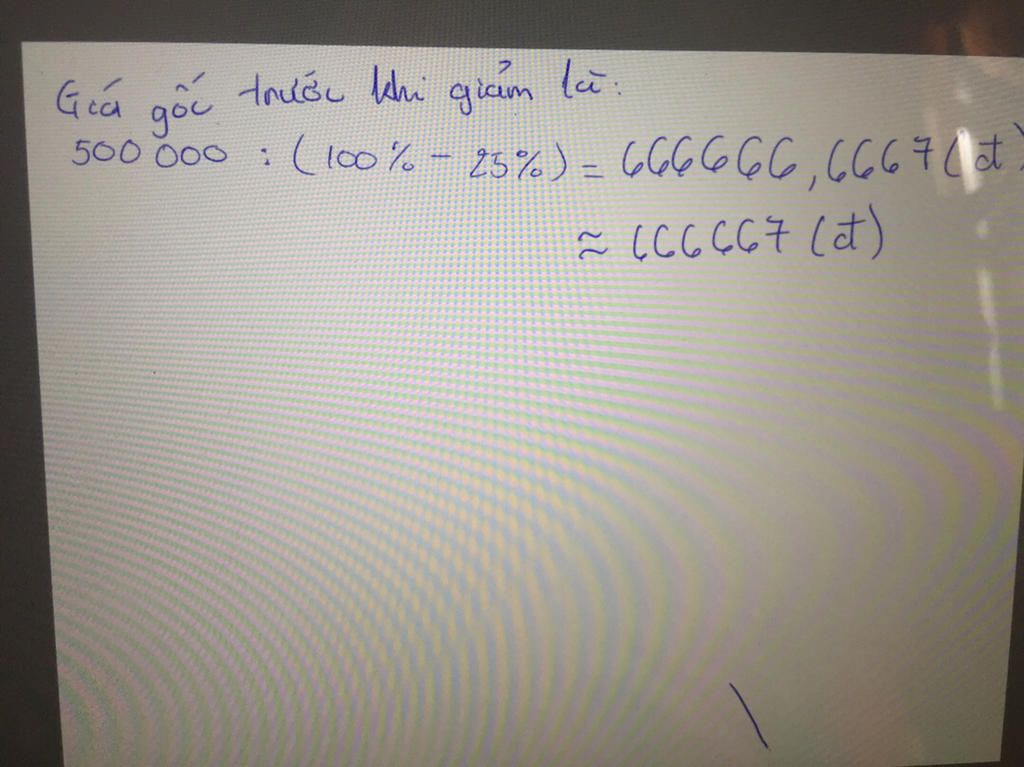 Giá gốc trước khi giảm là:
500 000 : (100% - 25%) = 666666,6667 (đ)
≈ 666667 (đ)